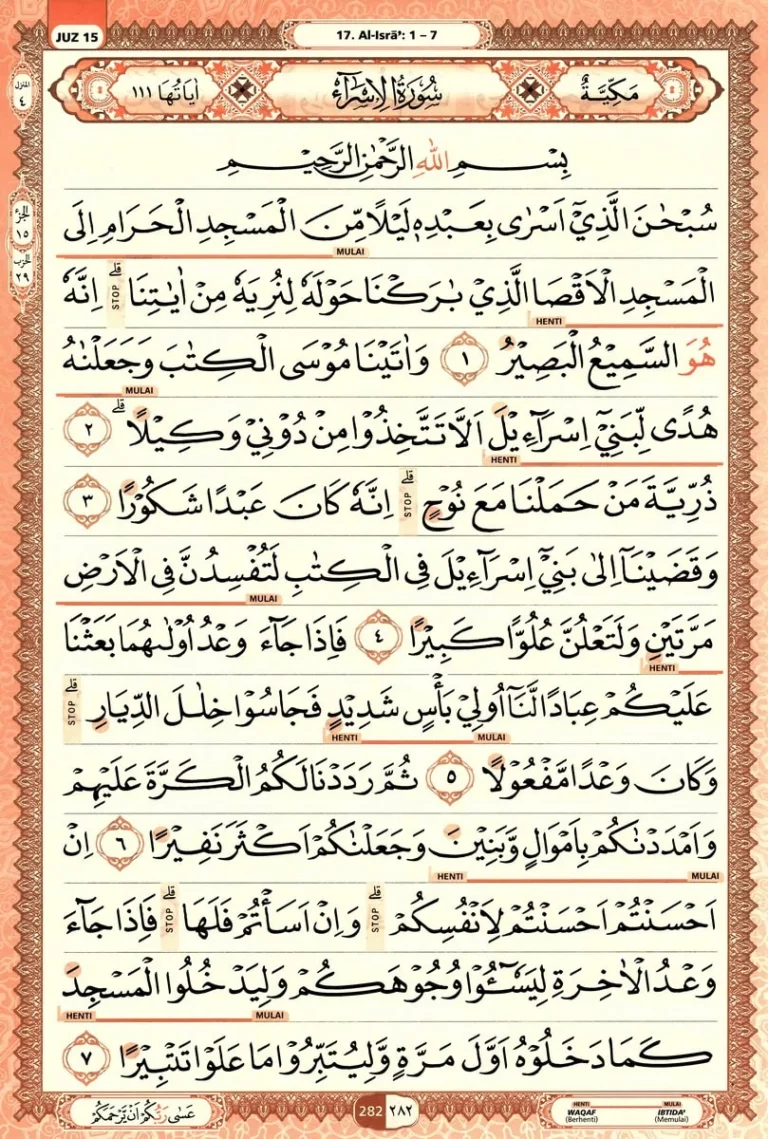 JUZ 15
17. Al-Isrā': 1 – 7
المنزل ٤
مَكِّيَّةٌ سُوْرَةُ الْاِسْرَاۤءِ اٰيَاتُهَا ١١١
بِسْمِ اللّٰهِ الرَّحْمٰنِ الرَّحِيْمِ
الجزء ١٥
الحزب ٢٩
سُبْحٰنَ الَّذِيْٓ اَسْرٰى بِعَبْدِهٖ لَيْلًا مِّنَ الْمَسْجِدِ الْحَرَامِ اِلَى
MULAI
الْمَسْجِدِ الْاَقْصَا الَّذِيْ بٰرَكْنَا حَوْلَهٗ لِنُرِيَهٗ مِنْ اٰيٰتِنَاۗ STOP اِنَّهٗ
HENTI
هُوَ السَّمِيْعُ الْبَصِيْرُ ١ وَاٰتَيْنَا مُوْسَى الْكِتٰبَ وَجَعَلْنٰهُ
MULAI
هُدًى لِّبَنِيْٓ اِسْرَاۤءِيْلَ اَلَّا تَتَّخِذُوْا مِنْ دُوْنِيْ وَكِيْلًاۗ ٢
HENTI
ذُرِّيَّةَ مَنْ حَمَلْنَا مَعَ نُوْحٍۗ STOP اِنَّهٗ كَانَ عَبْدًا شَكُوْرًا ٣
وَقَضَيْنَآ اِلٰى بَنِيْٓ اِسْرَاۤءِيْلَ فِى الْكِتٰبِ لَتُفْسِدُنَّ فِى الْاَرْضِ
MULAI
مَرَّتَيْنِ وَلَتَعْلُنَّ عُلُوًّا كَبِيْرًا ٤ فَاِذَا جَاۤءَ وَعْدُ اُوْلٰىهُمَا بَعَثْنَا
HENTI
عَلَيْكُمْ عِبَادًا لَّنَآ اُولِيْ بَأْسٍ شَدِيْدٍ فَجَاسُوْا خِلٰلَ الدِّيَارِۗ STOP
HENTI MULAI
وَكَانَ وَعْدًا مَّفْعُوْلًا ٥ ثُمَّ رَدَدْنَا لَكُمُ الْكَرَّةَ عَلَيْهِمْ
وَاَمْدَدْنٰكُمْ بِاَمْوَالٍ وَّبَنِيْنَ وَجَعَلْنٰكُمْ اَكْثَرَ نَفِيْرًا ٦ اِنْ
HENTI MULAI
اَحْسَنْتُمْ اَحْسَنْتُمْ لِاَنْفُسِكُمْۗ STOP وَاِنْ اَسَأْتُمْ فَلَهَاۗ STOP فَاِذَا جَاۤءَ
وَعْدُ الْاٰخِرَةِ لِيَسٗۤـُٔوْا وُجُوْهَكُمْ وَلِيَدْخُلُوا الْمَسْجِدَ
HENTI MULAI
كَمَا دَخَلُوْهُ اَوَّلَ مَرَّةٍ وَّلِيُتَبِّرُوْا مَا عَلَوْا تَتْبِيْرًا ٧
عَسٰى رَبُّكُمْ اَنْ يَّرْحَمَكُمْ
282 ٢٨٢
HENTI MULAI
WAQAF IBTIDA'
(Berhenti) (Memulai)